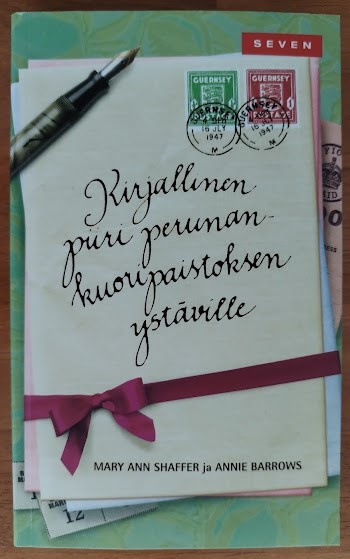 SEVEN
GUERNSEY
GUERNSEY
GUERNSEY
16 JLY
1947
M
GUERNSEY
1947
M
Kirjallinen
piiri perunan-
kuoripaistoksen
ystäville
MARY ANN SHAFFER ja ANNIE BARROWS
12